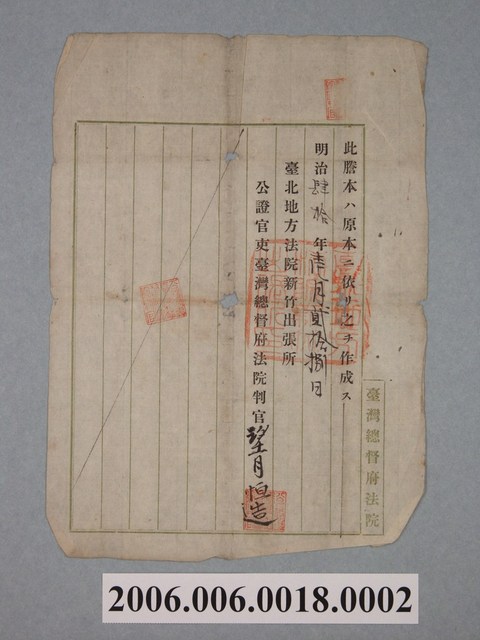 此謄本ハ原本ニ依リ之ヲ作成ス
明治肆拾年壹月貳拾捌日
臺北地方法院新竹出張所
公證官吏臺灣總督府法院判官望月恒造
臺灣總督府法院
2006.006.0018.0002